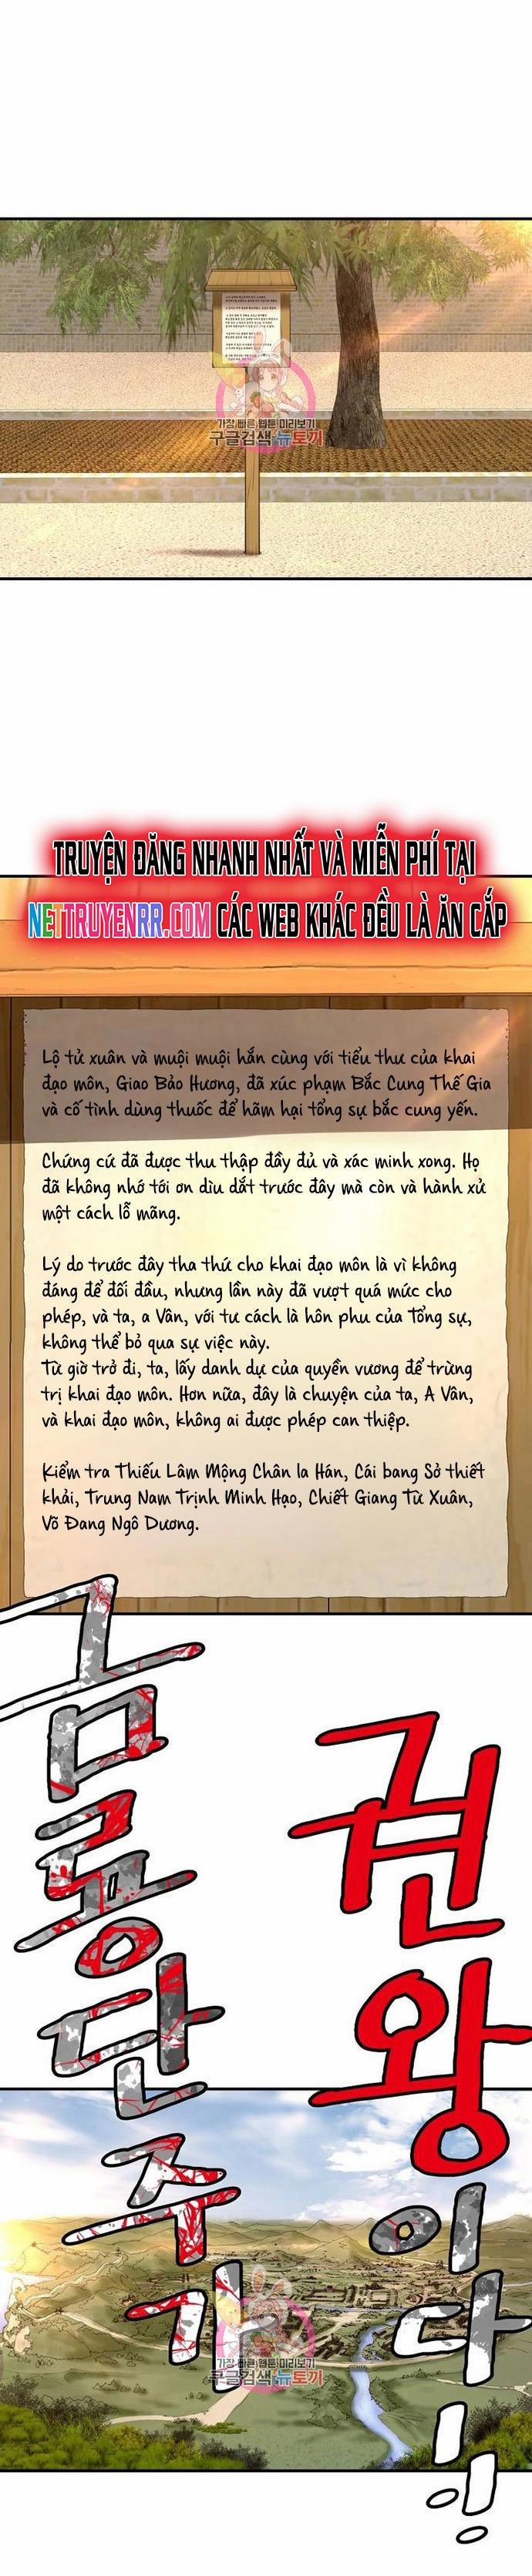 가장 빠른 웹툰 미리보기
구글검색 뉴토끼
TRUYỆN ĐĂNG NHANH NHẤT VÀ MIỄN PHÍ TẠI
NETTRUYENRR.COM CÁC WEB KHÁC ĐỀU LÀ ĂN CẮP
Lộ tử xuân và muội muội hắn cùng với tiểu thư của khai
đạo môn, Giao Bảo Hương, đã xúc phạm Bắc Cung Thế Gia
và cố tình dùng thuốc để hãm hại tổng sự bắc cung yến.
Chứng cứ đã được thu thập đầy đủ và xác minh xong. Họ
đã không nhớ tới ơn dìu dắt trước đây mà còn và hành xử
một cách lỗ mãng.
Lý do trước đây tha thứ cho khai đạo môn là vì không
đáng để đối đầu, nhưng lần này đã vượt quá mức cho
phép, và ta, a Vân, với tư cách là hôn phu của Tổng sự,
không thể bỏ qua sự việc này.
Từ giờ trở đi, ta, lấy danh dự của quyền vương để trừng
trị khai đạo môn. Hơn nữa, đây là chuyện của ta, A Vân,
và khai đạo môn, không ai được phép can thiệp.
Kiểm tra Thiếu Lâm Mộng Chân la Hán, Cái bang Sở thiết
khải, Trung Nam Trịnh Minh Hạo, Chiết Giang Từ Xuân,
Võ Đang Ngô Dương.
금룡단주가
권왕이다!!
가장 빠른 웹툰 미리보기
구글검색 뉴토끼